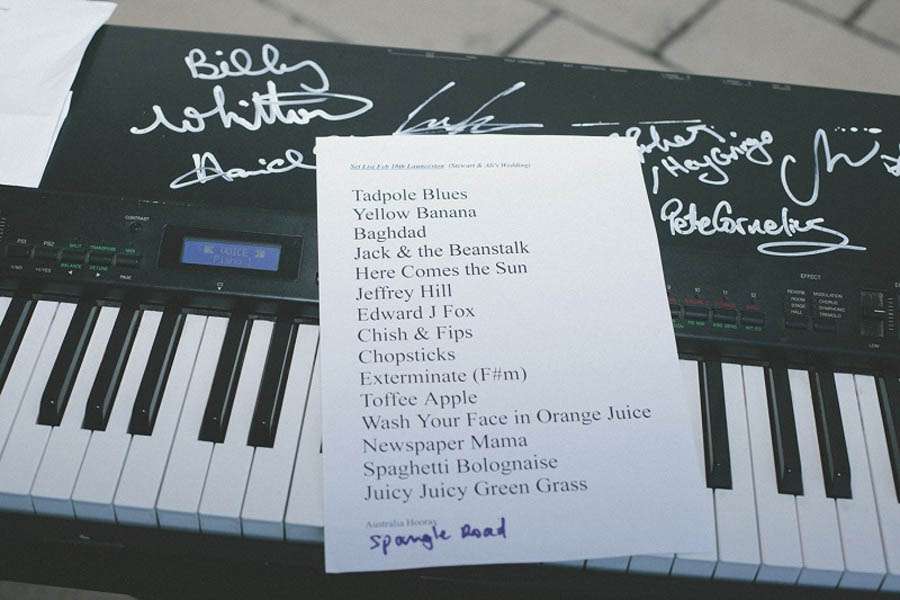 Billy
Whitton
Hey Gringo
Pete Cornelius
Set List Feb 18th Launceston (Stewart & Ali's Wedding)
Tadpole Blues
Yellow Banana
Baghdad
Jack & the Beanstalk
Here Comes the Sun
Jeffrey Hill
Edward J Fox
Chish & Fips
Chopsticks
Exterminate (F#m)
Toffee Apple
Wash Your Face in Orange Juice
Newspaper Mama
Spaghetti Bolognaise
Juicy Juicy Green Grass
Australia Hooray
Spangle Road
CONTRAST
PB1 PB2 SPLIT TRANSPOSE
-/NO +/YES BALANCE DETUNE PAGE
VOICE
Piano
EFFECT
REVERB MODULATION
ROOM CHORUS
STAGE SYMPHONIC
HALL TREMOLO
LOW